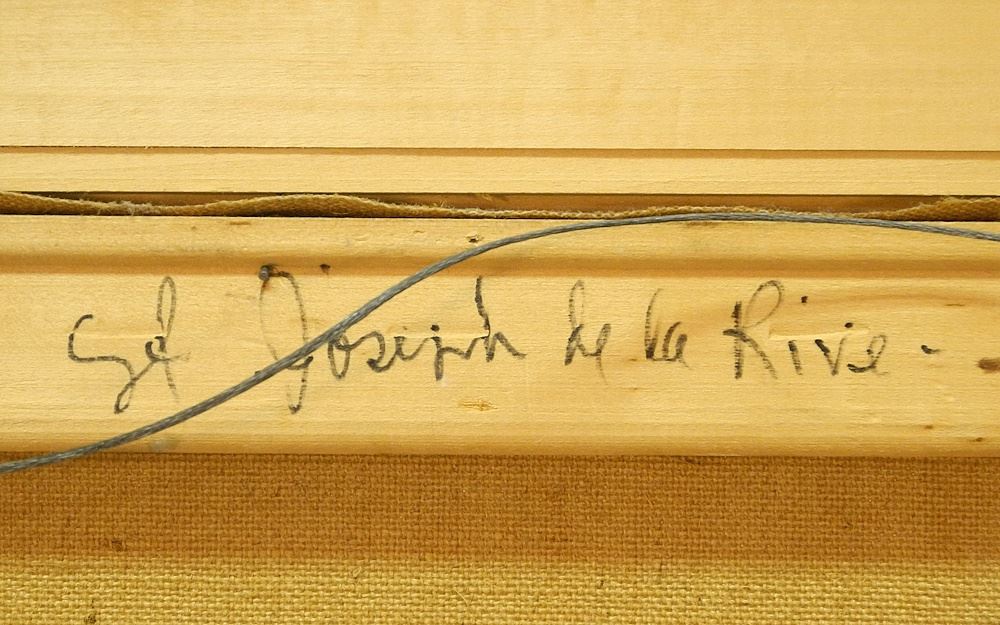 St Joseph de la Rive -